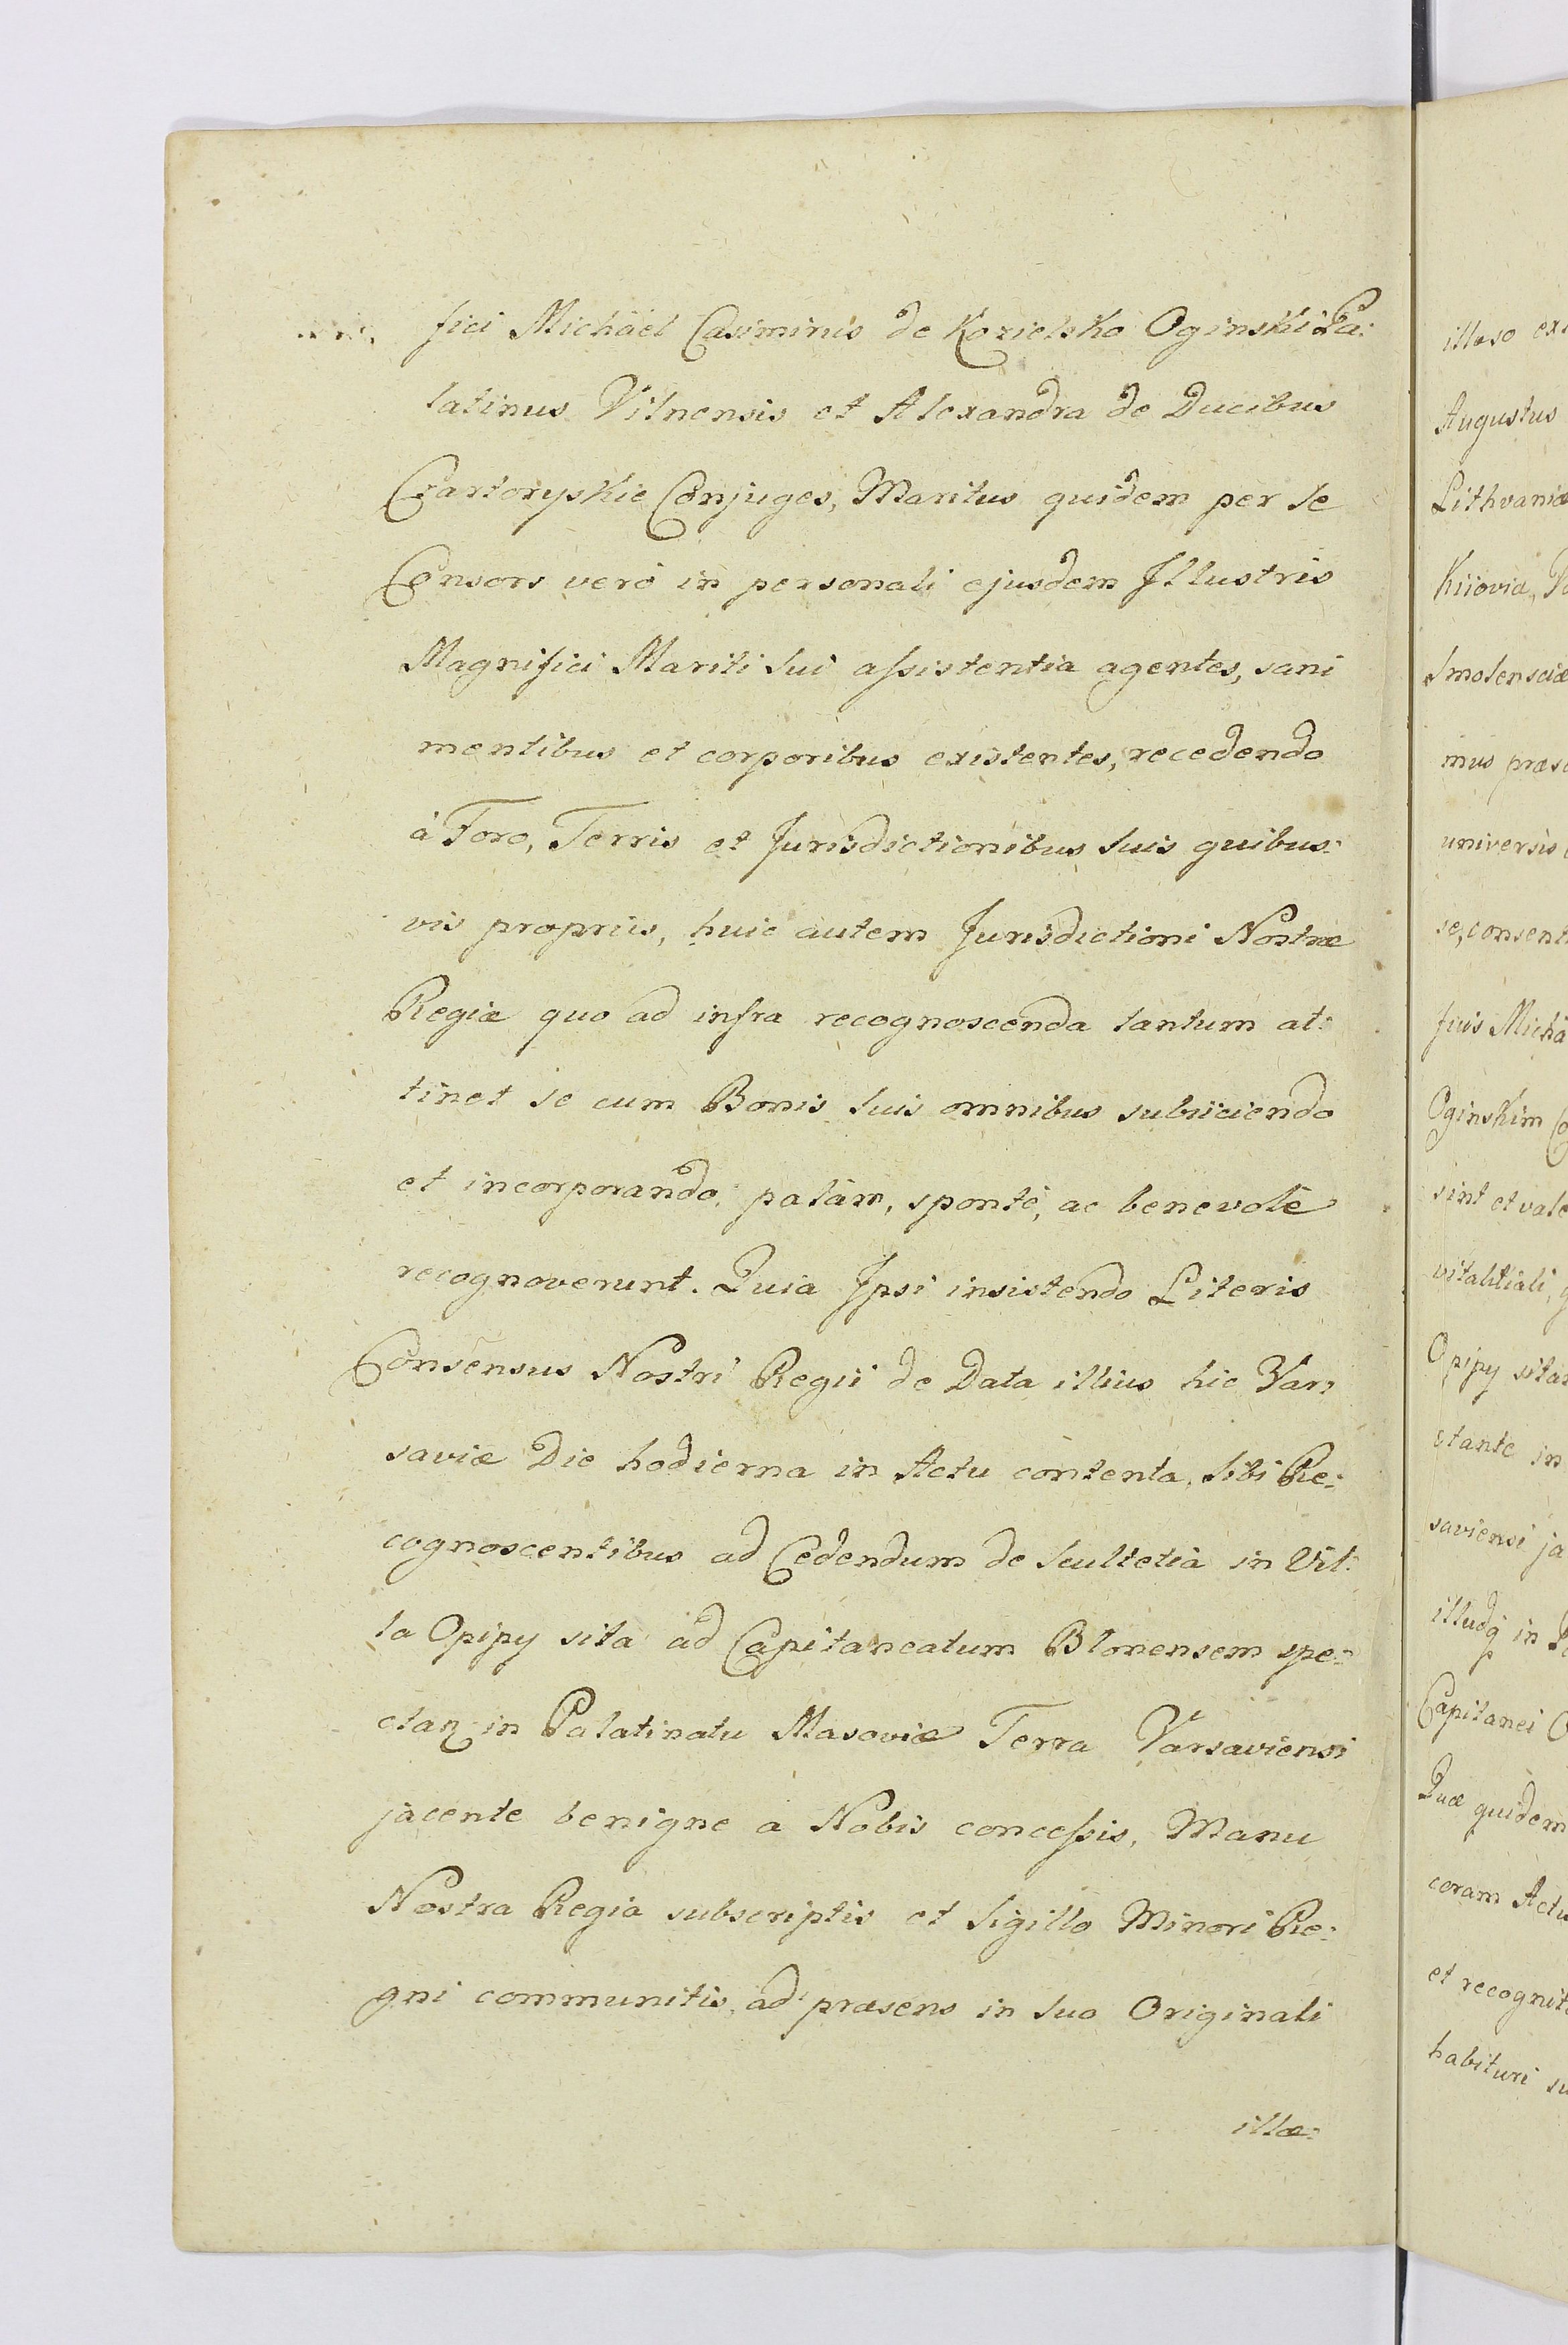 fici Michäel Casimirus de Kozielsko Oginski Pa:
latinus Vilnensis et Alexandra de Ducibus
Czartoryskie Conjuges, Maritus quidem per se
Consors verò in personali ejusdem Illustris
Magnifici Mariti sui assistentia agentes, sani
mentibus et corporibus existentes, recedendo
à Foro, Terris et Jurisdictionibus suis quibus:
vis propriis, huic autem Jurisdictioni Nostræ
Regiæ quo ad infra recognoscenda tantum at:
tinet se cum Bonis suis omnibus subiiciendo
et incorporando, palàm, spontè, ac benevolè
recognoverunt. Quia Ipsi insistendo Literis
Consensus Nostri Regii de Data illius hic Var:
saviæ Die hodierna in Actu contenta, sibi Re:
cognoscentibus ad Cedendum de Scultetia in Vil:
la Opipy sita ad Capitaneatum Blonensem spe:
ctan in Palatinatu Masoviæ Terra Varsaviensi
jacente benigne a Nobis concessis, Manu
Nostra Regia subscriptis et Sigillo Minori Re:
gni communitis, ad præsens in suo Originali
illæ:
illæso
Augustus
Lithvaniæ
Kiioviæ,
Smolensciæ
mus
universis
se,
Oginskim
sint et
vitalitiali,
Opipy
ctante in
saviensi
illudq in
Capitanei
Quæ quidem
coram
et
habituri